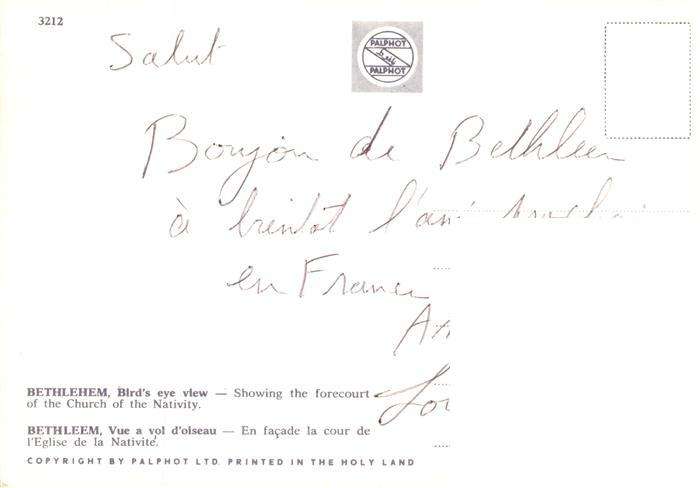 3212
Salut
PALPHOT
PALPHOT
Boujou de Bethleem
à bientot l'an
en France
BETHLEHEM, Bird's eye view — Showing the forecourt
of the Church of the Nativity.
BETHLEEM, Vue a vol d'oiseau — En façade la cour de
l'Eglise de la Nativité.
COPYRIGHT BY PALPHOT LTD. PRINTED IN THE HOLY LAND